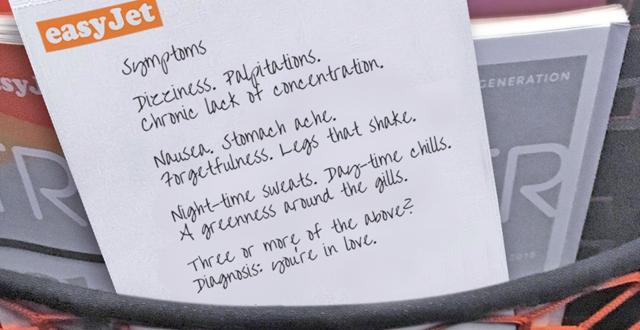 easyJet
Symptoms
Dizziness. Palpitations.
Chronic lack of concentration.
Nausea. Stomach ache.
Forgetfulness. Legs that shake.
Night-time sweats. Day-time chills.
A greenness around the gills.
Three or more of the above?
Diagnosis: you're in love.
GENERATION